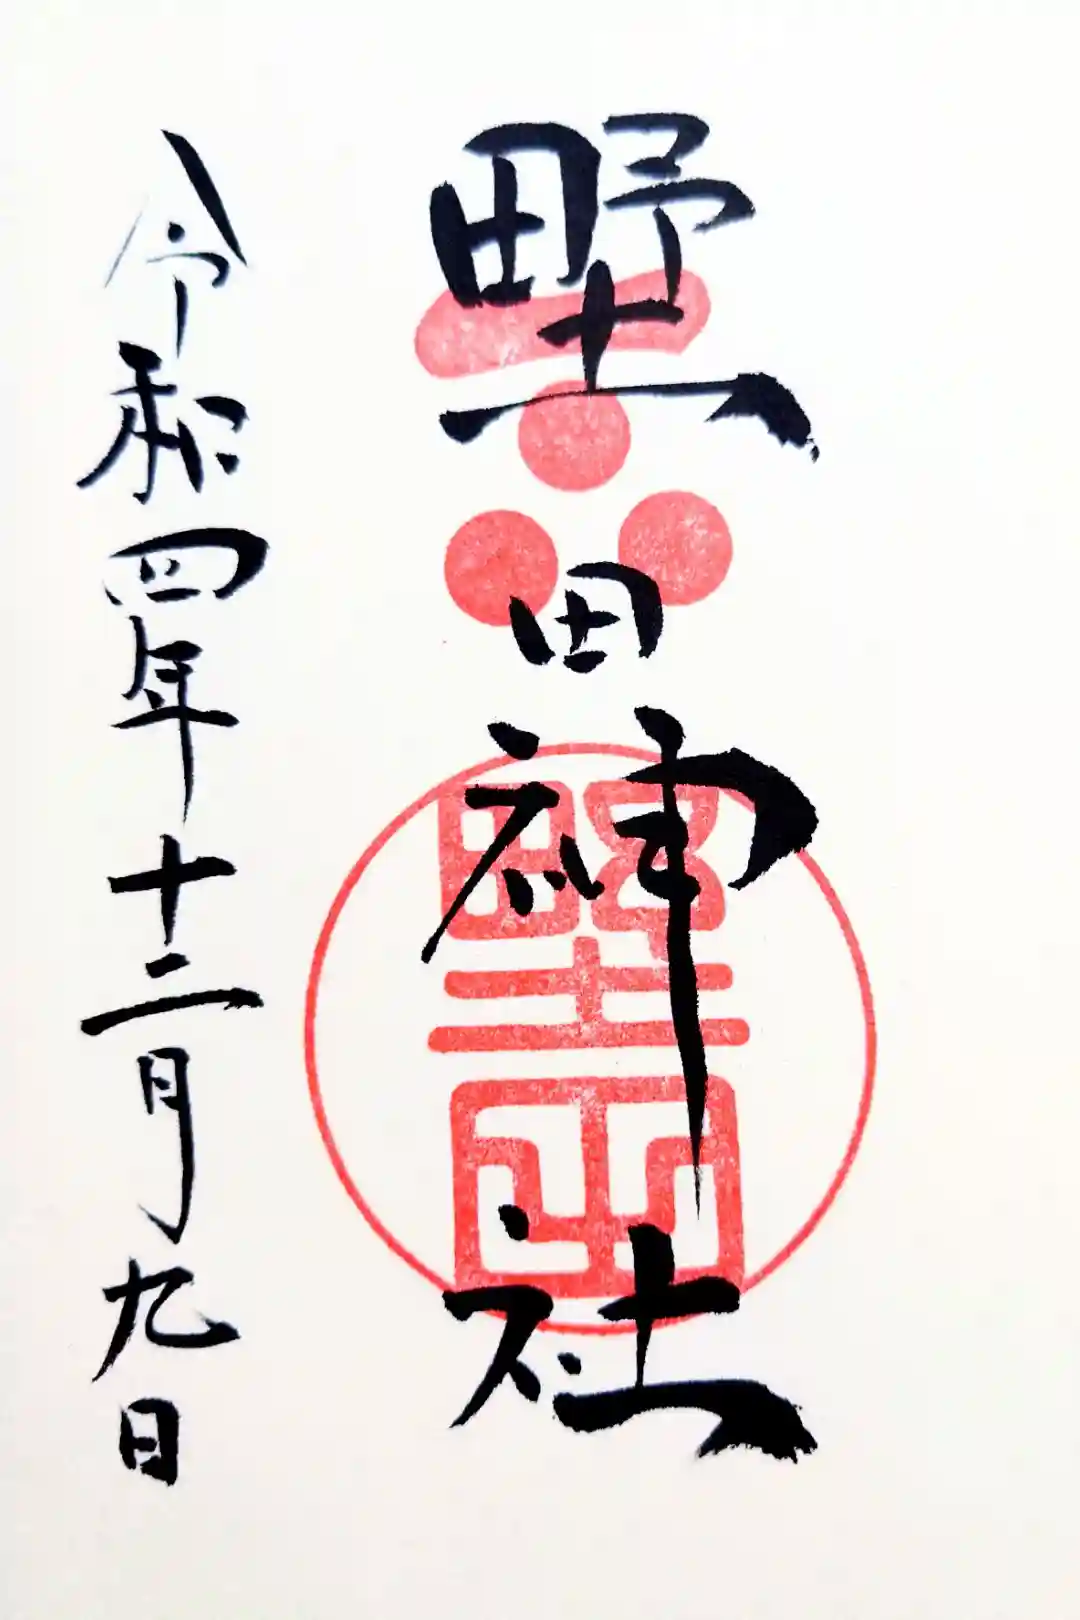 野田神社
野田
令和四年十二月九日